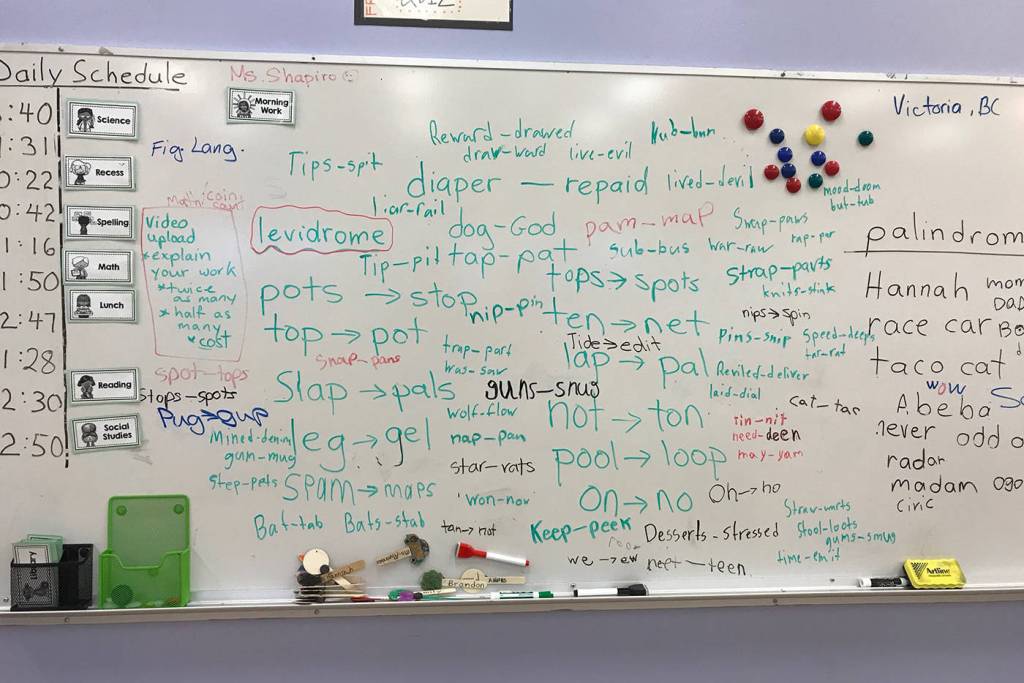 Daily Schedule
Ms. Shapiro
Victoria, BC
:40
Science
Morning Work
:31
Recess
0:22
0:42
Spelling
1:16
Math
1:50
Lunch
2:47
1:28
Reading
2:30
Social Studies
2:50
Fig. Lang.
Video
upload
*explain
your work
*twice
as many
* half as
many
*cost
Reward-drawed
Nub-bun
draw-ward
live-evil
Tips-spit
diaper — repaid
lived-devil
mood-doom
but-tub
liar-rail
levidrome
dog-God
pam-map
Swap-paws
Tip-pit
tap-pat
sub-bus
war-raw
tops→spots
Strap-parts
knits-stink
pots → stop
nip-pin
ten→net
nips→spin
top → pot
Tide→edit
Pins-snip
Speed-deeps
tar-rat
snap-pans
trap-part
was-saw
lap→pal
Reviled-deliver
laid-dial
spot-tops
stops-spots
Slap→pals
guns-snug
cat-tac
Pug→gup
wolf-flow
not → ton
tin-nit
need-deen
may-yam
Mined-denim
gum-mug
leg → gel
nap-pan
pool→loop
star-rats
Step-pets
Spam→maps
won-now
on→no
Oh→ho
Straw-warts
Bat-tab
Bats-stab
Keep-peek
Desserts-stressed
Stool-loots
gums-smug
we→ew
neet—teen
time-emit
palindrom
Hannah
mom
DAD
race car
taco cat
wow
A beba
never odd o
radar
madam
civic
Brandon
Artline